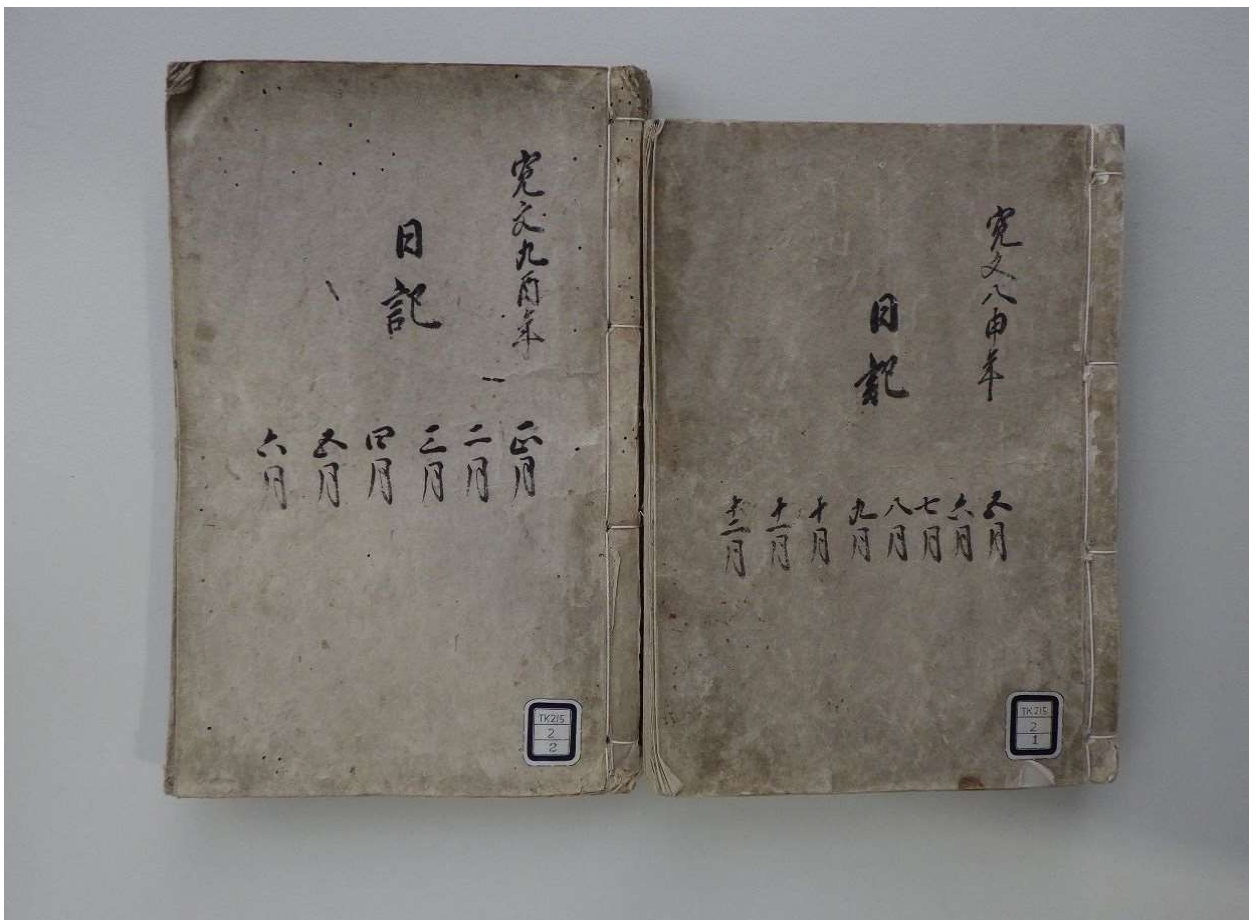 寛文八申年
日記
五月
六月
七月
八月
九月
十月
十一月
十二月
TK215
2
1
寛文九酉年
日記
正月
二月
三月
四月
五月
六月
TK215
2
2